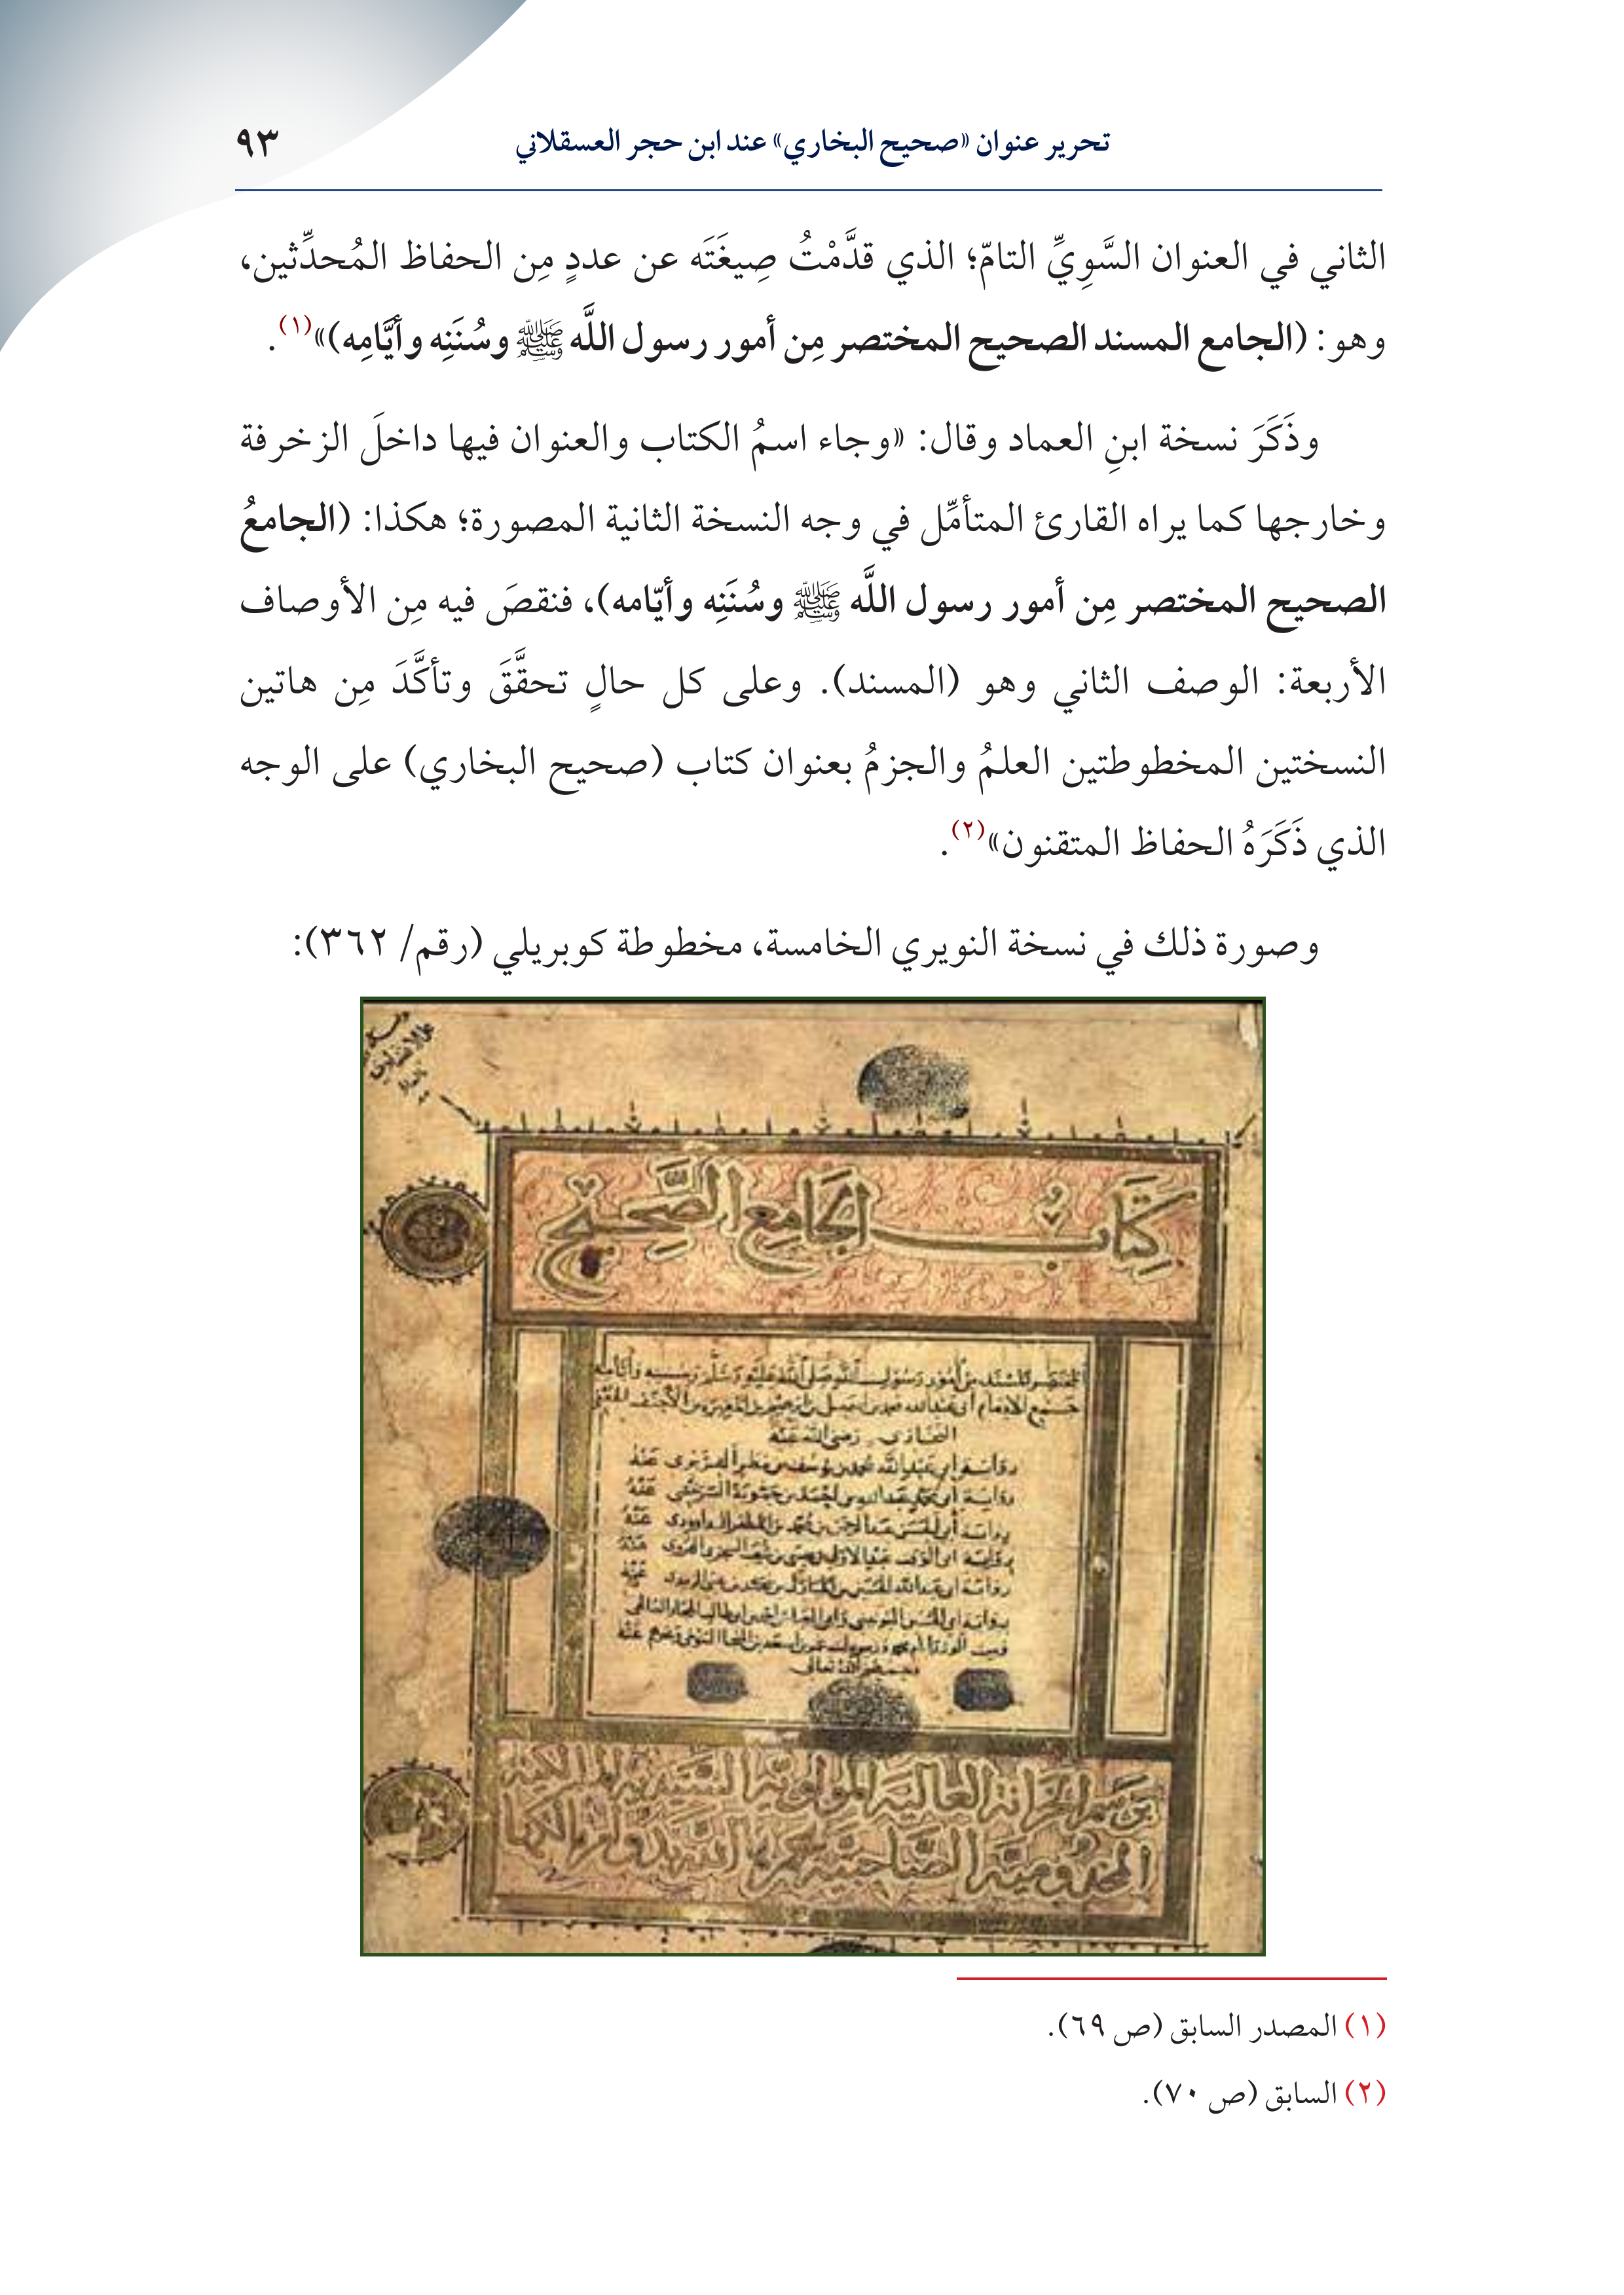 تحرير عنوان «صحيح البخاري» عند ابن حجر العسقلاني
٩٣
الثاني في العنوان السَّوِيِّ التامّ؛ الذي قدَّمْتُ صِيغَتَه عن عددٍ مِن الحفاظ المُحدِّثين،
وهو: (الجامع المسند الصحيح المختصر مِن أمور رسول اللَّه ﷺ وسُنَنِه وأيَّامِه)»(١).
وذَكَرَ نسخة ابنِ العماد وقال: «وجاء اسمُ الكتاب والعنوان فيها داخلَ الزخرفة
وخارجها كما يراه القارئ المتأمِّل في وجه النسخة الثانية المصورة؛ هكذا: (الجامعُ
الصحيح المختصر مِن أمور رسول اللَّه ﷺ وسُنَنِه وأيّامه)، فنقصَ فيه مِن الأوصاف
الأربعة: الوصف الثاني وهو (المسند). وعلى كل حالٍ تحقَّقَ وتأكَّدَ مِن هاتين
النسختين المخطوطتين العلمُ والجزمُ بعنوان كتاب (صحيح البخاري) على الوجه
الذي ذَكَرَهُ الحفاظ المتقنون»(٢).
وصورة ذلك في نسخة النويري الخامسة، مخطوطة كوبريلي (رقم/ ٣٦٢):
كِتَابُ الجَامِعِ الصَّحِيحِ
المختصر المسند من أمور رسول الله صلى الله عليه وسلم وسننه وأيامه
البخاري رضي الله عنه
رواية أبي عبد الله محمد بن يوسف بن مطر الفربري عنه
(١) المصدر السابق (ص ٦٩).
(٢) السابق (ص ٧٠).